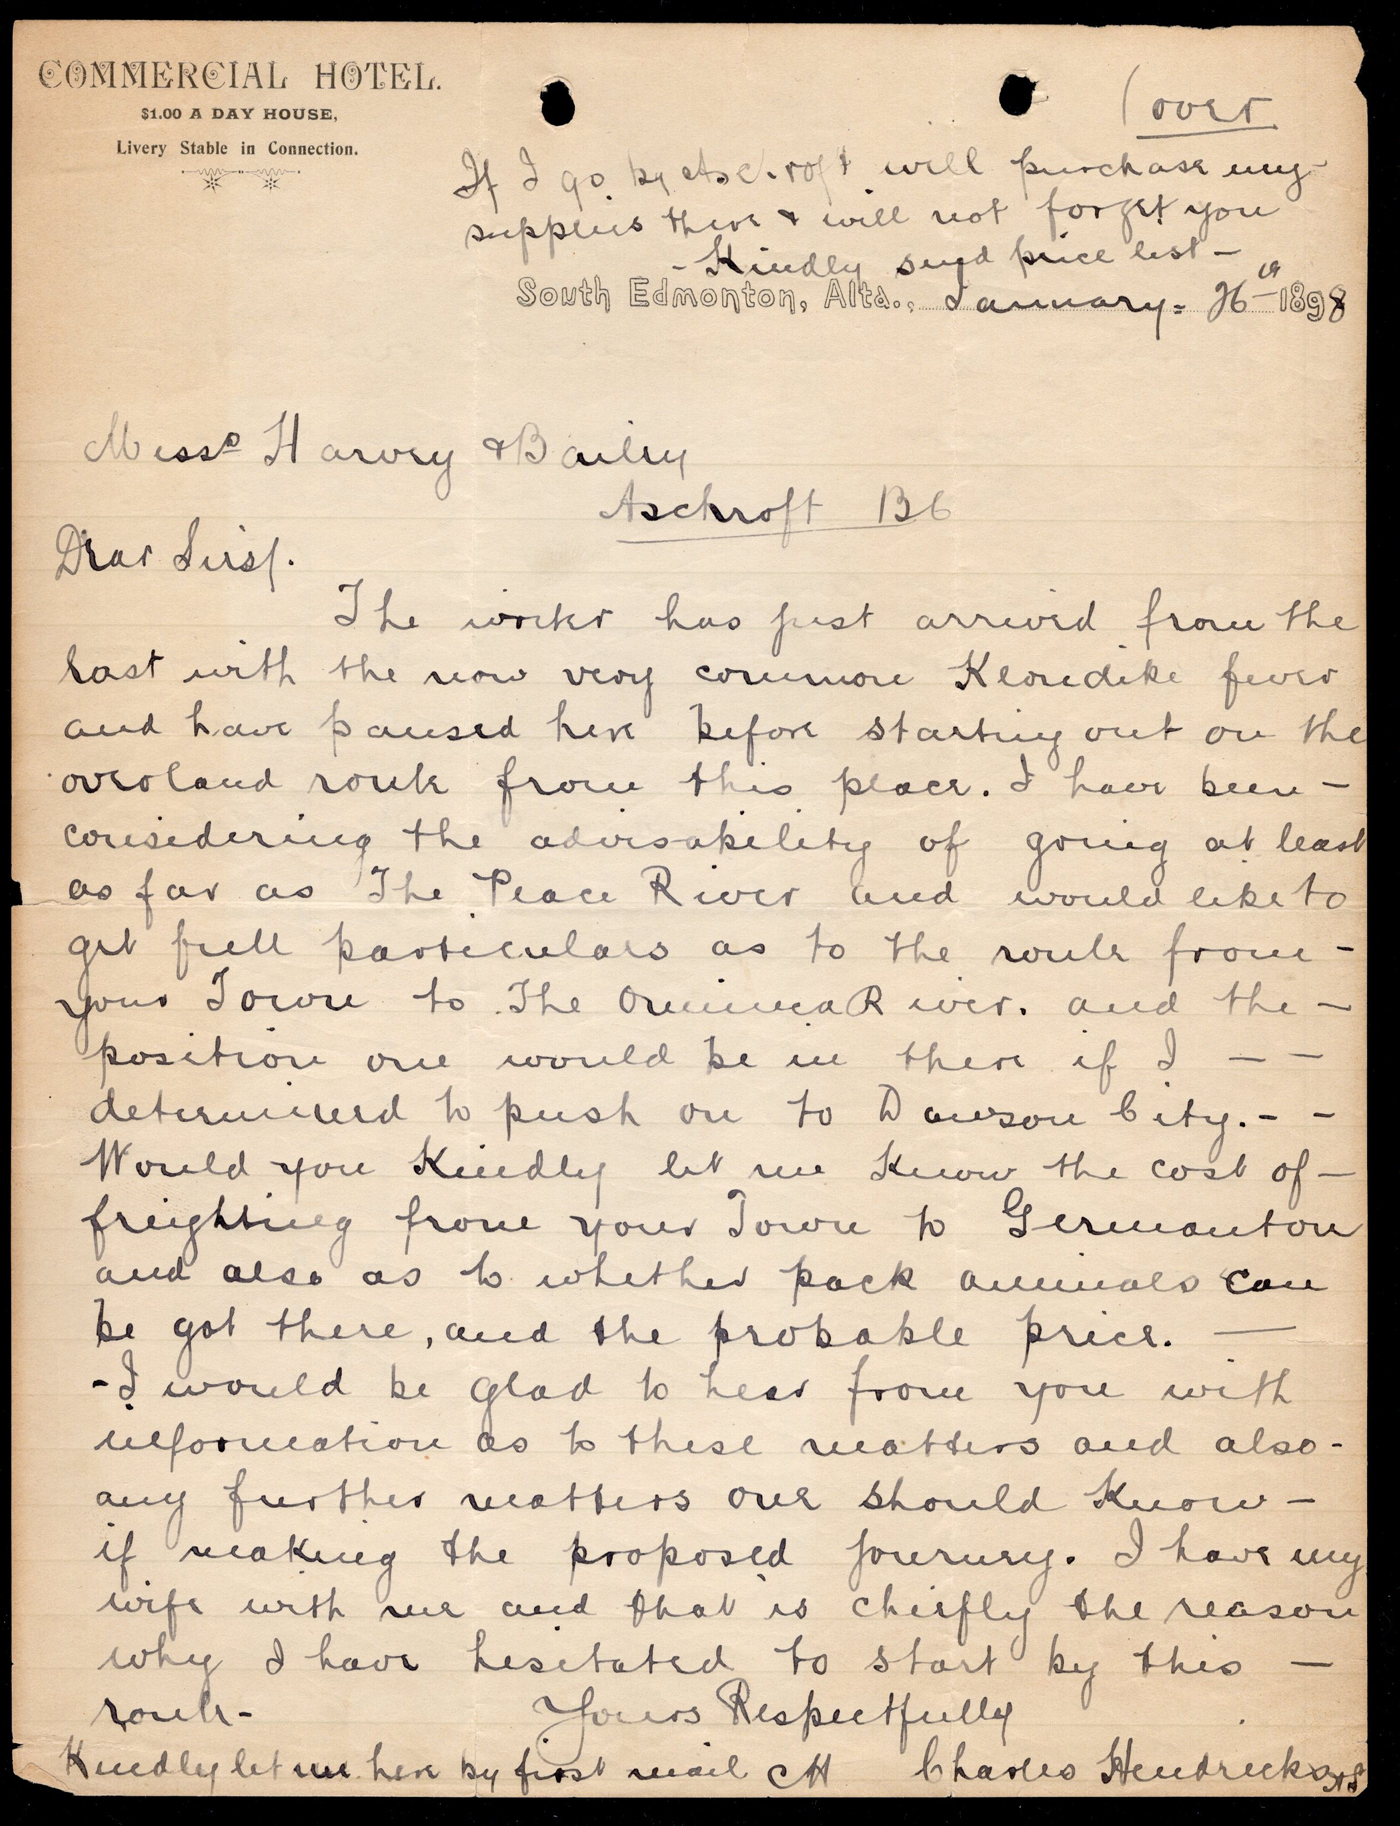 COMMERCIAL HOTEL.
$1.00 A DAY HOUSE,
Livery Stable in Connection.
(over
If I go by Aschroft will purchase my
supplies there & will not forget you
- Kindly send price list -
South Edmonton, Alta., January = 26th 1898
Messrs Harvey & Bailey
Aschroft BC
Dear Sirs/.
The writer has just arrived from the
East with the now very common Klondike fever
and have paused here before starting out on the
overland route from this place. I have been -
considering the advisability of going at least
as far as The Peace River and would like to
get full particulars as to the route from -
your Town to The Ominica River. and the -
position one would be in there if I - -
determined to push on to Dawson City. - -
Would you Kindly let me Know the cost of -
freighting from your Town to Germanton
and also as to whether pack animals can
be got there, and the probable price. -
- I would be glad to hear from you with
information as to these matters and also -
any further matters one should Know -
if making the proposed journey. I have my
wife with me and that is chiefly the reason
why I have hesitated to start by this -
route - Yours Respectfully
Kindly let me here by first mail CH Charles Hendricks